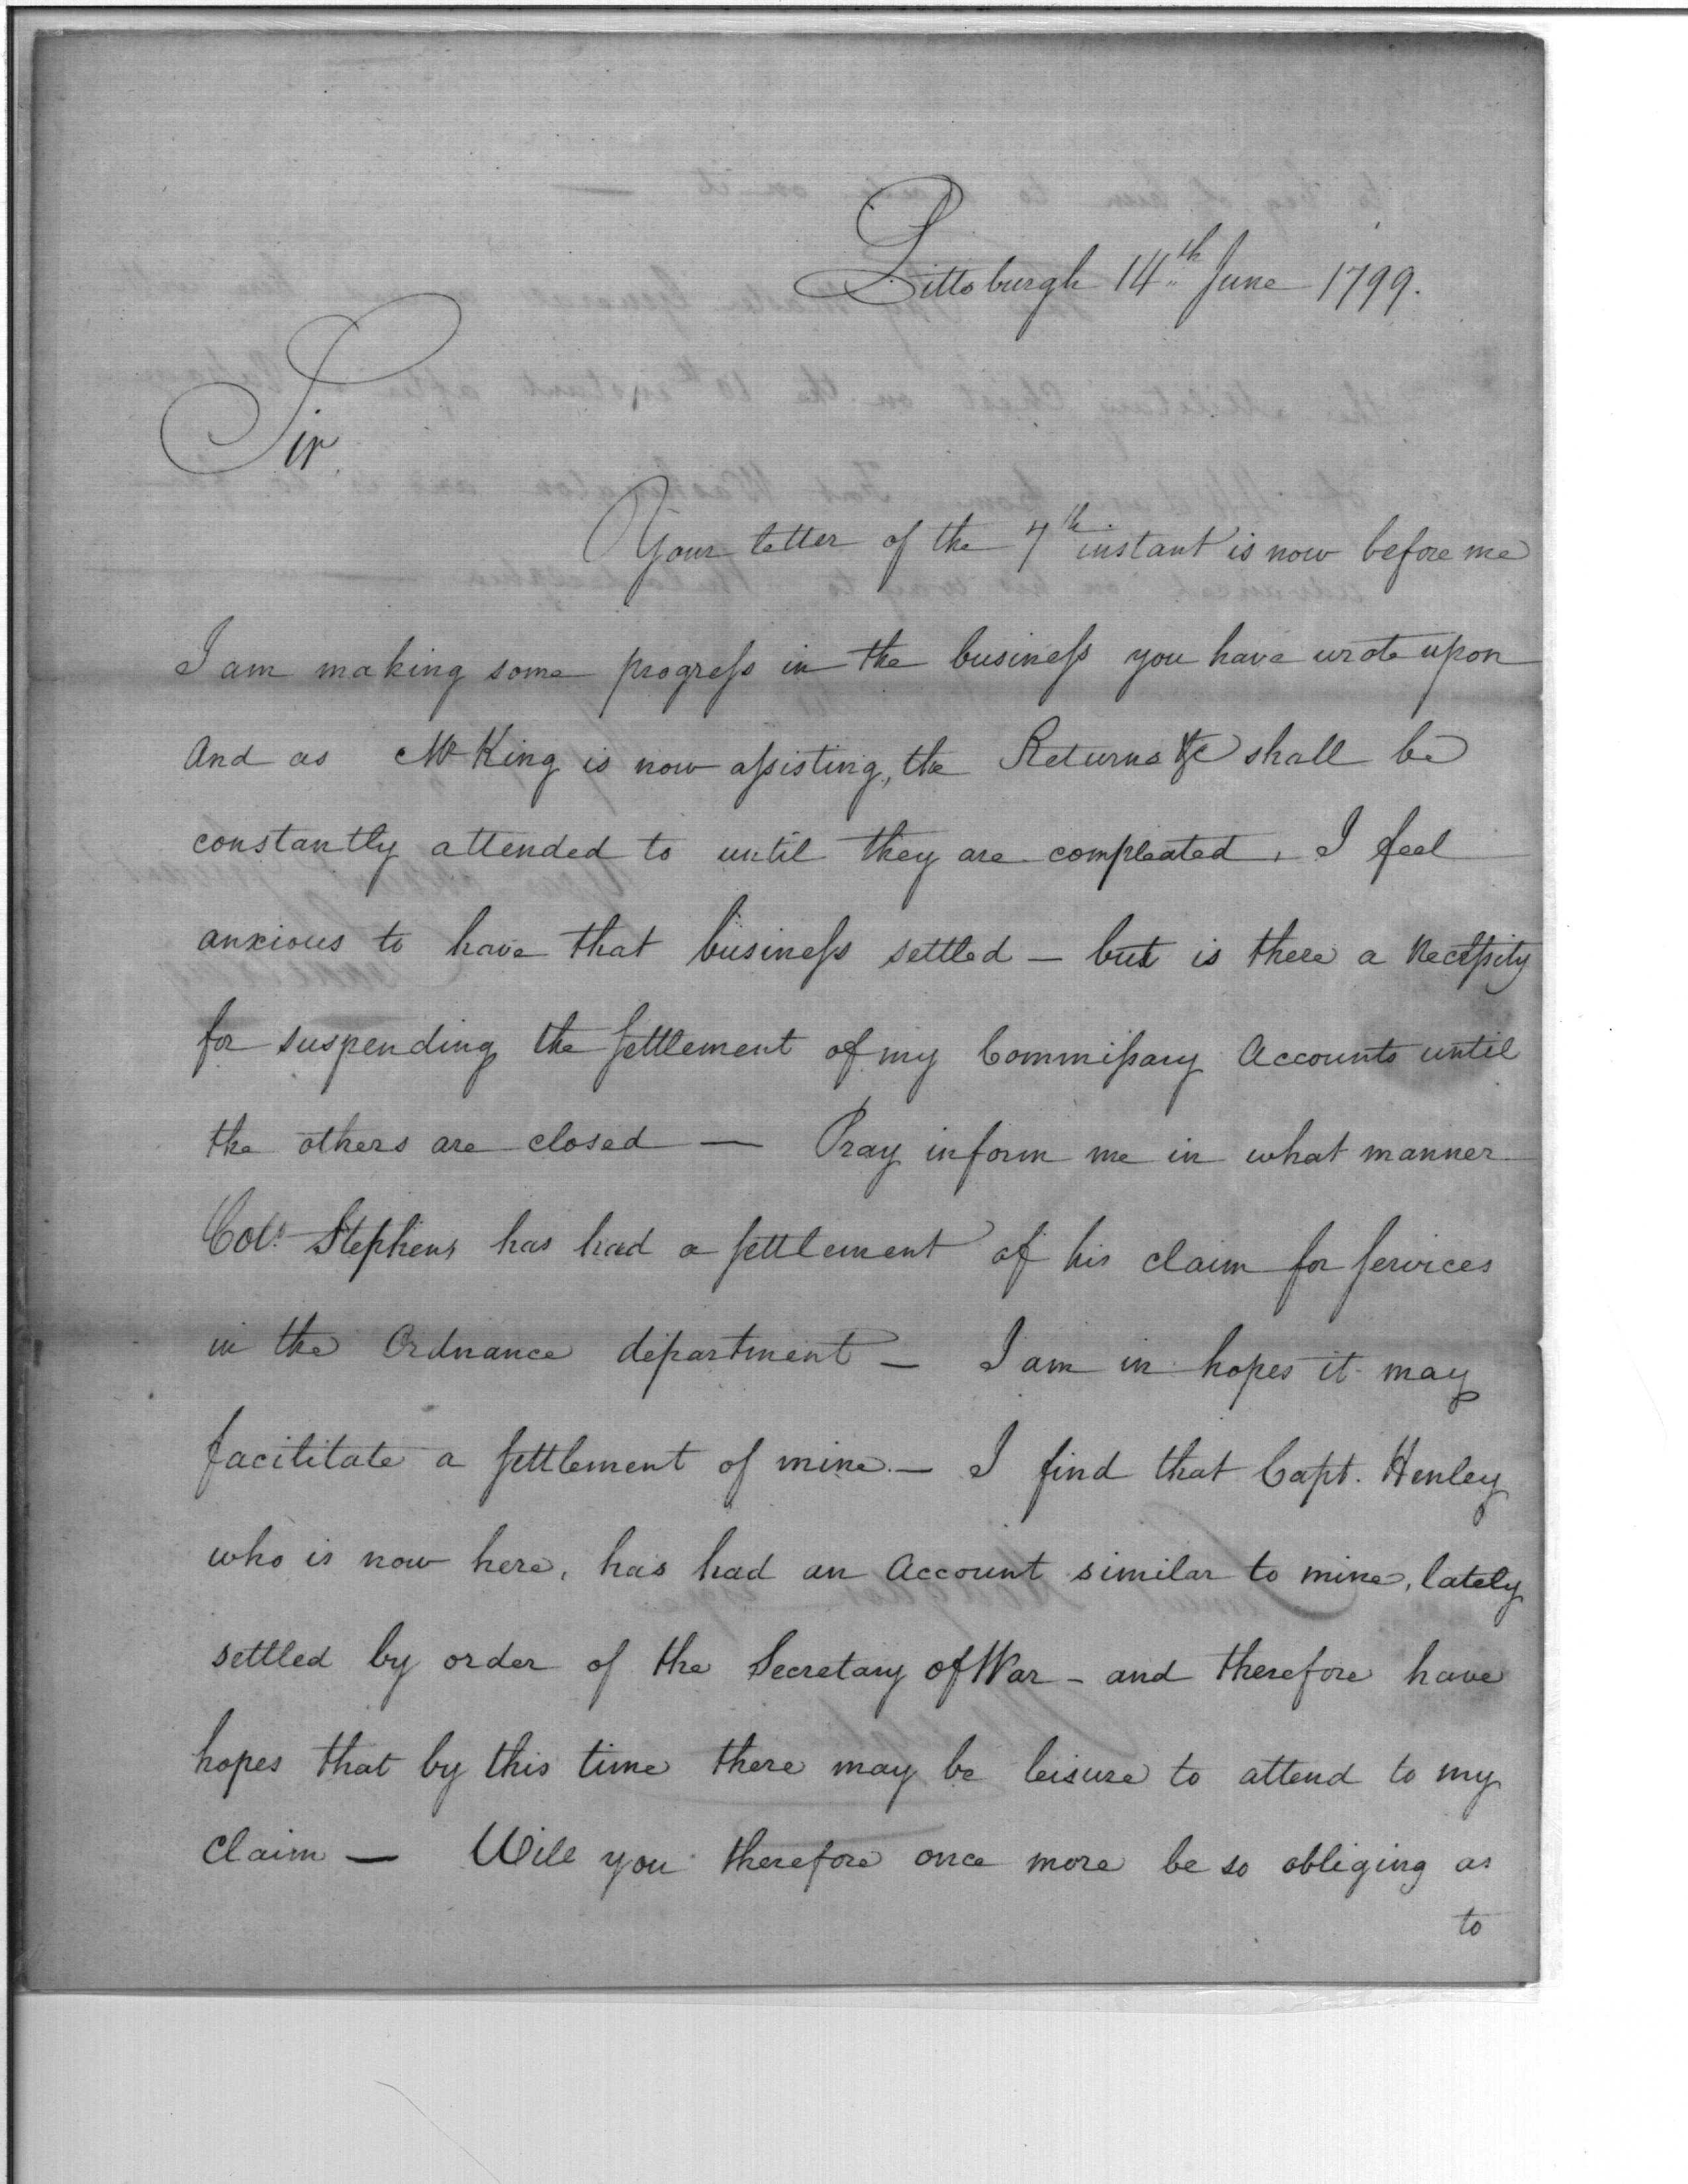 Pittsburgh 14th June 1799.
Sir
Your letter of the 7th instant is now before me
I am making some progress in the business you have wrote upon
And as Mr King is now assisting, the Returns &c shall be
constantly attended to until they are compleated, I feel
anxious to have that business settled — but is there a necessity
for suspending the settlement of my Commissary Accounts until
the others are closed — Pray inform me in what manner
Colo. Stephens has had a settlement of his claim for services
in the Ordnance department — I am in hopes it may
facilitate a settlement of mine — I find that Capt. Henley
who is now here, has had an Account similar to mine, lately
settled by order of the Secretary of War — and therefore have
hopes that by this time there may be leisure to attend to my
Claim — Will you therefore once more be so obliging as
to